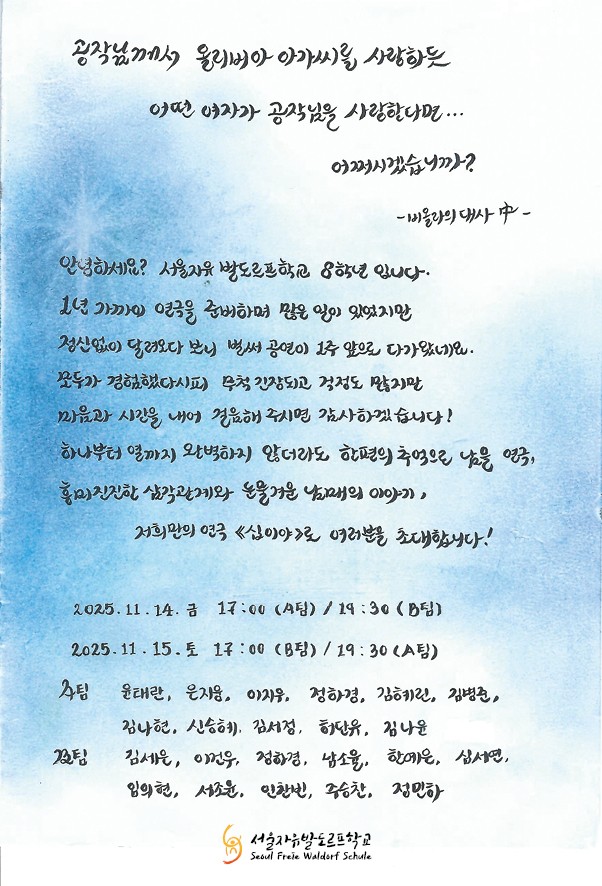 공작님께서 올리비아 아가씨를 사랑하듯
어떤 여자가 공작님을 사랑한다면...
어쩌시겠습니까?
-비올라의 대사 中-
안녕하세요? 서울자유 발도르프학교 8학년 입니다.
1년 가까이 연극을 준비하며 많은 일이 있었지만
정신없이 달려오다 보니 벌써 공연이 1주 앞으로 다가왔네요.
모두가 경험했다시피 무척 긴장되고 걱정도 많지만
마음과 시간을 내어 걸음해 주시면 감사하겠습니다!
하나부터 열까지 완벽하지 않더라도 한편의 추억으로 남을 연극,
흥미진진한 삼각관계와 눈물겨운 남매의 이야기,
저희만의 연극 《십이야》로 여러분을 초대합니다!
2025.11.14.금 17:00 (A팀) / 19:30 (B팀)
2025.11.15.토 17:00 (B팀) / 19:30 (A팀)
A팀 윤태란, 은지웅, 이지우, 정하경, 김혜린, 김병준,
김나현, 신승혜, 김서정, 허단유, 김나윤
B팀 김세은, 이건우, 정하경, 남소율, 한예은, 심서연,
임의현, 서조윤, 인찬빈, 주승찬, 정민하
서울자유발도르프학교
Seoul Freie Waldorf Schule